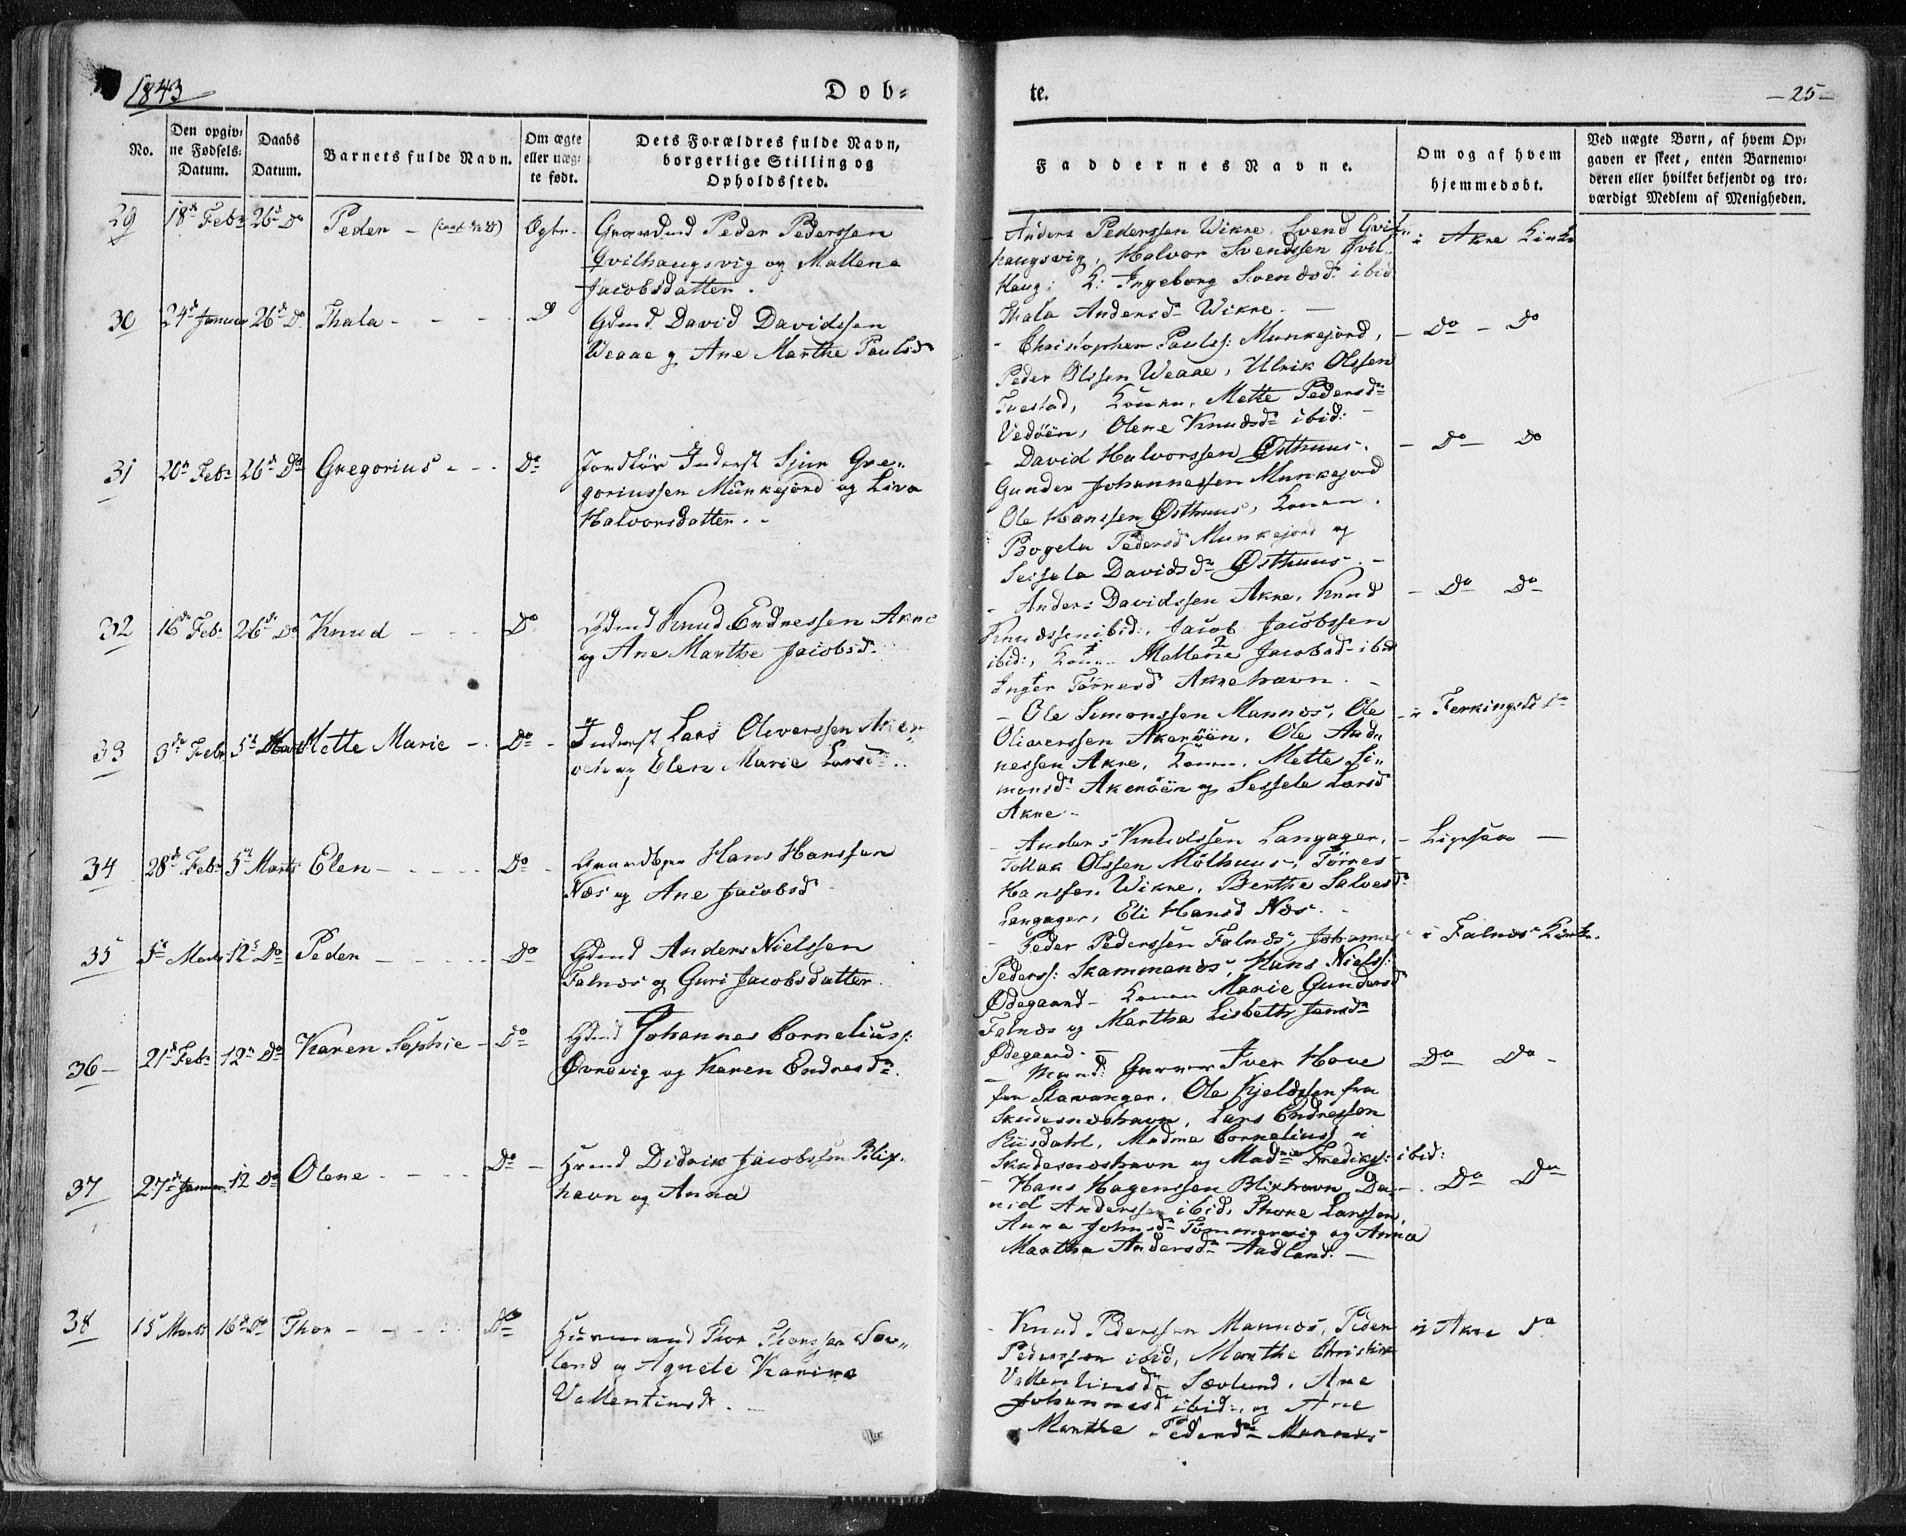 1843
Døb-
te.
-25-
No.
Den opgiv-
ne Fødsels-
Datum.
Daabs
Datum.
Barnets fulde Navn.
Om ægte
eller uæg-
te født.
Dets Forældres fulde Navn,
borgerlige Stilling og
Opholdssted.
Faddernes Navne.
Om og af hvem
hjemmedøbt.
Ved uægte Børn, af hvem Op-
gaven er skeet, enten Barnemo-
deren eller hvilket bekjendt og tro-
værdigt Medlem af Menigheden.
29 18de Febr 26de Do Peder - Ægte. Gaardmd Peder Pederssen
Qvilhaugsvig og Mallena
Jacobsdatter.
- Anders Pederssen Wikre, Svend Qvil-
haugsvig, Halvor Svendssen Qvil-
haug; K: Ingeborg Svendsd. ibid
Thala Andersdr Wikre. -
i Akre Kirke
30 24de Januar 26de Do Thala - - - Do Gdmd David Davidssen
Weaae og Ane Marthe Paulsd
- Christopher Pauls: Munkejord,
Peder Olssen Weaae, Ulrik Olssen
Tuestad, Konen, Mette Pedersdr
Vedöen, Olene Knudsdr ibid: -
- Do - Do
31 20de Febr 26de Do Gregorius - - - Do Jordløs Inderst Sjur Gre-
goriussen Munkejord og Liva
Halvorsdatter. -
- David Halvorssen Østhuus.
Gunder Johannessen Munkejord
Ole Hanssen Østhuus, Konen.
Bogela Pedersd Munkejord og
Sessela Davidsdr Østhuus. -
- Do - Do
32 16de Febr 26de Do Knud - - - Do Gdmd Knud Endressen Akre
og Ane Marthe Jacobsd.
- Anders Davidssen Akre, Knud
Knudssen ibid:, Jacob Jacobssen
ibid:, Konen Mallene Jacobsd ibid
Inger Tørresd Akrehavn. -
- Do Do
33 3de Febr 5te Marts Mette Marie - Do - Inderst Lars Oliverssen Aker-
öen og Elen Marie Larsd.
- Ole Simonssen Mannes, Ole
Oliverssen Akeröen, Ole And-
nessen Akre, Konen, Mette Si-
monsdr Akeröen og Sessele Larsd
Akre -
- i Ferkingstd Do
34 28de Febr 5te Marts Elen - - - Do - Gaardbr Hans Hanssen
Næs og Ane Jacobsd -
- Anders Knudssen Langager,
Tollak Olssen Mölhuus, Tørres
Hanssen Wikre, Berthe Salvesdr
Langager, Eli Hansd Næs. -
- Ligesaa -
35 5te Marts 12te Do Peder - - - Do Gdmd Anders Nielssen
Falnæs og Guri Jacobsdatter.
- Peder Pederssen Falnæs, Johannes
Peders: Skammenæs, Hans Niels:
Ødegaard - Konen Marie Gundersd
Falnæs og Martha Lisbeth Jansdr
Ødegaard. -
i Falnæs Kirke.
36 - 21de Febr 12te Do Karen Sophie - Do Gdmd Johannes Cornelius:
Øvrevig og Karen Endresdr.
- Iver Hove
fra Stavanger, Ole Kjeldssen fra
Skudesneshavn, Lars Endressen
Stiisdahl, Madme Corneliuss i
Skudesneshavn og Madme Frediks: ibid:
Do Do -
37 27de Januar 12 Do Olene - - - Do - Hmd Didrik Jacobssen Blix-
havn og Anna
- Hans Hagenssen Blixhavn, Da-
nid Anderssen ibid, Thore Larssen,
Anna Johnsdr Tömmervig og Anna
Martha Andersdr Aadland. -
- Do Do
38 15 Marts 16de Do Thor - - - Do Huusmand Thor Thorssen Sæv-
land og Agnete Karine
Vallentinsdr. -
- Knud Pederssen Mannæs, Peder
Pederssen ibid, Marthe Christine
Vallentinsdr Sævland, Ane
Johannesdr ibid:, og Ane
Marthe Pedersdr Mannæs
i Akre Do